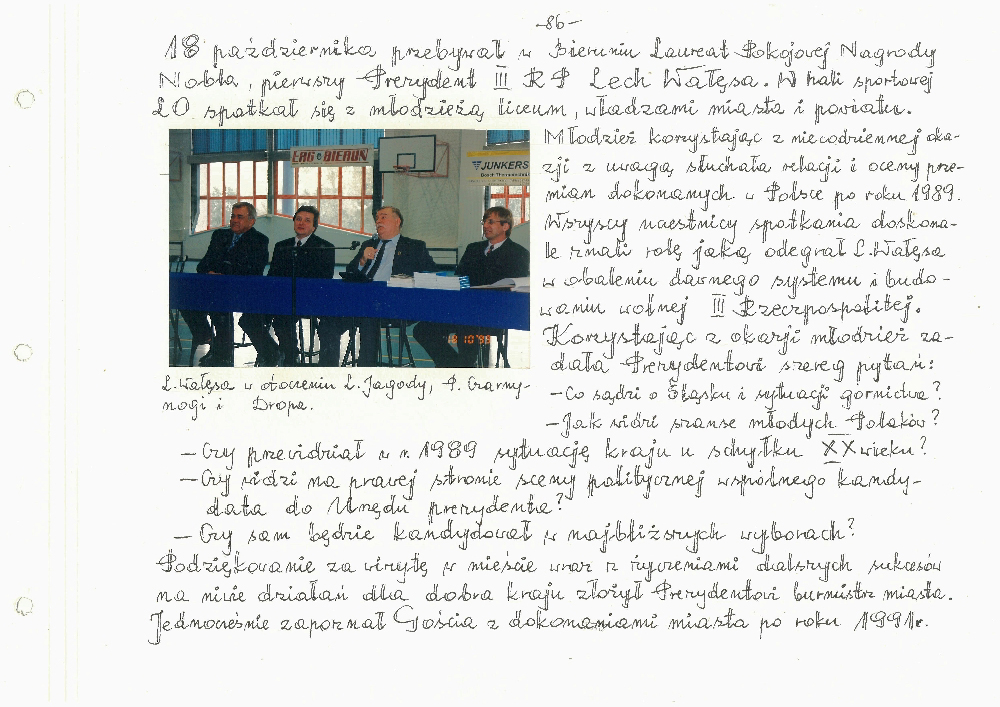 -86-
18 października przebywał w Bieruniu Laureat Pokojowej Nagrody
Nobla, pierwszy Prezydent III RP Lech Wałęsa. W hali sportowej
LO spotkał się z młodzieżą liceum, władzami miasta i powiatu.
ERG e BIERUŃ
JUNKERS
Bosch Thermotechnik
Młodzież korzystając z niecodziennej oka-
zji z uwagą słuchała relacji i oceny prze-
mian dokonanych w Polsce po roku 1989.
Wszyscy uczestnicy spotkania doskona-
le znali rolę jaką odegrał L. Wałęsa
w obaleniu dawnego systemu i budo-
waniu wolnej III Rzeczpospolitej.
Korzystając z okazji młodzież za-
dała Prezydentowi szereg pytań:
- Co sądzi o Śląsku i sytuacji górnictwa?
- Jak widzi szanse młodych Polaków?
18 10 '99
L. Wałęsa w otoczeniu L. Jagody, A. Czarny-
nogi i Dropa.
- Czy przewidział w r. 1989 sytuację kraju u schyłku XX wieku?
- Czy widzi na prawej stronie sceny politycznej wspólnego kandy-
data do Urzędu prezydenta?
- Czy sam będzie kandydował w najbliższych wyborach?
Podziękowanie za wizytę w mieście wraz z życzeniami dalszych sukcesów
na niwie działań dla dobra kraju złożył Prezydentowi burmistrz miasta.
Jednocześnie zapoznał Gościa z dokonaniami miasta po roku 1991r.